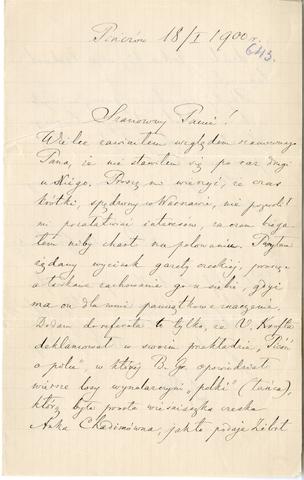 Pińczów 18/I 1900 r.
643.
Szanowny Panie!
Wielce zawiniłem względem szanownego
Pana, że nie stawiłem się po raz drugi
u Niego. Proszę mi wierzyć, że czas
krótki, spędzony w Warszawie, nie pozwolił
mi załatwić interesów, za któremi biega-
łem niby chart na polowaniu.
żądany wycinek gazety czeskiej, proszę
o łaskawe zachowanie go u siebie, gdyż
ma on dla mnie pamiątkowe znaczenie.
Dodam do referatu to tylko, że V.
deklamował w swoim przekładzie „Pieśń
o polce", w której B. Gr. opowiedział
wierszem losy wynalazczyni „polki" (tańca),
którą była prosta wieśniaczka czeska
Anka Chadimówna, jak to podaje Zibrt